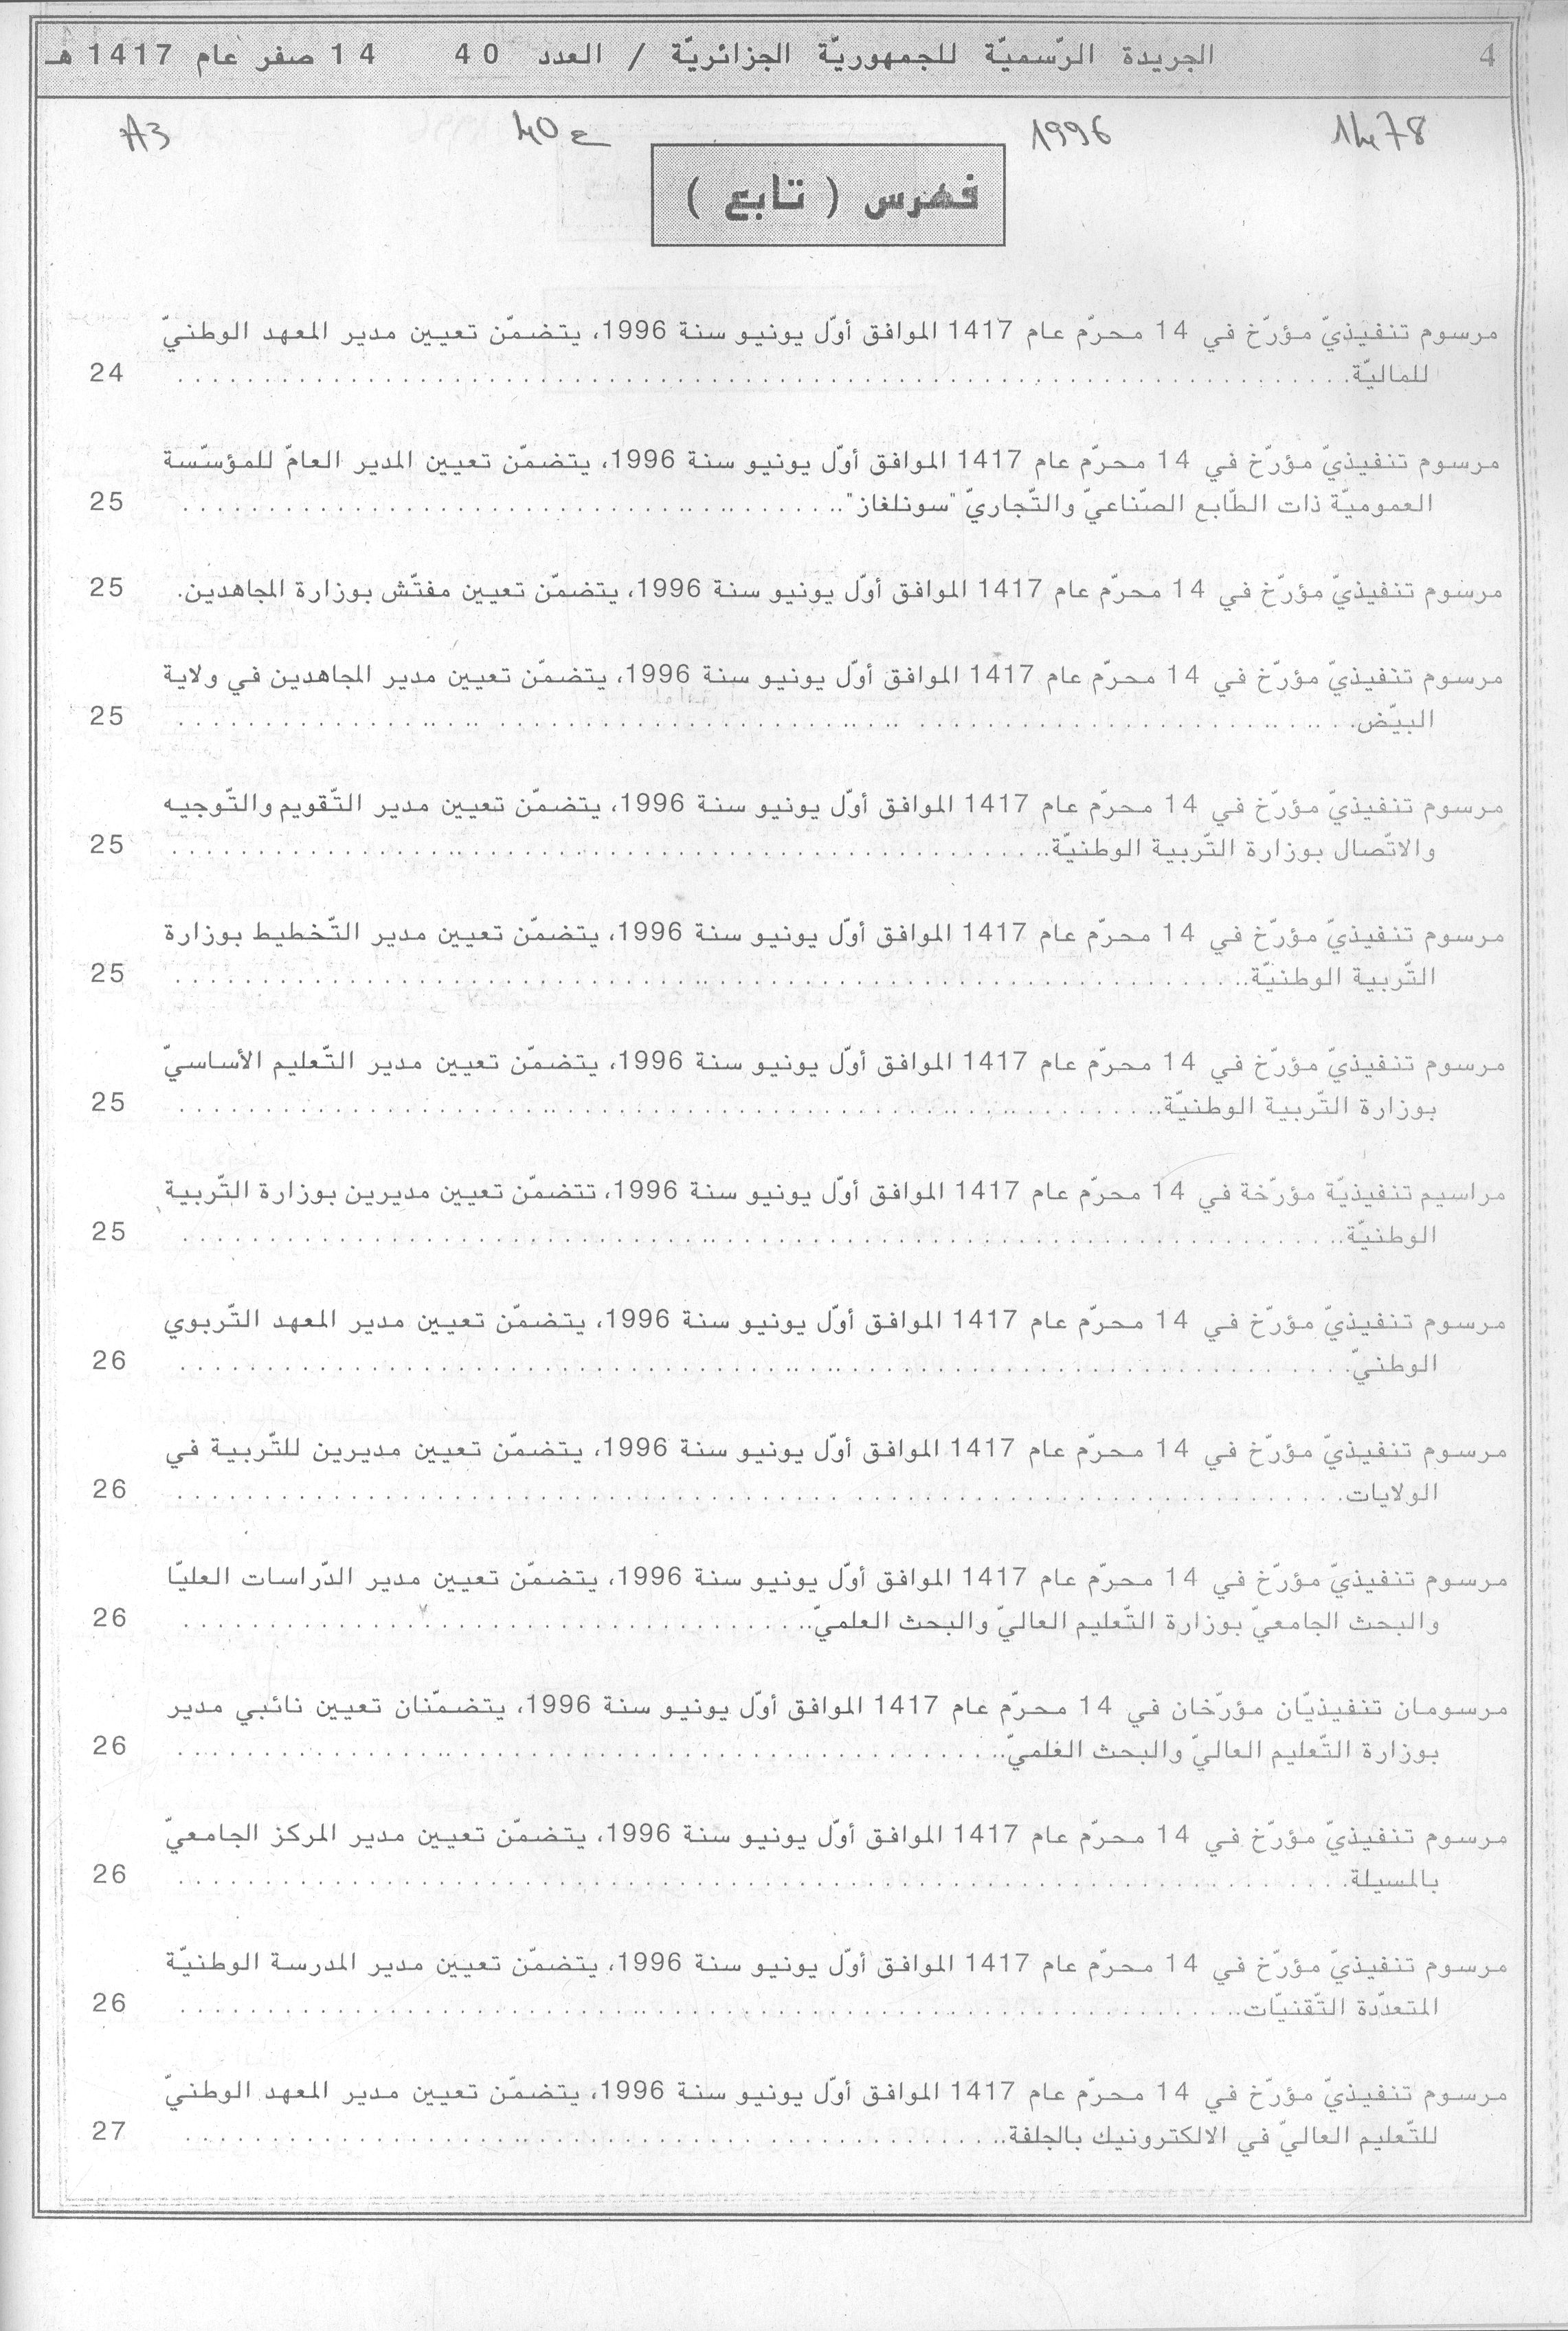 4 الجريدة الرّسميّة للجمهوريّة الجزائريّة / العدد 40 14 صفر عام 1417 هـ
1478 1996 ع 40 A3
فهرس ( تابع )
مرسوم تنفيذيّ مؤرّخ في 14 محرّم عام 1417 الموافق أوّل يونيو سنة 1996، يتضمّن تعيين مدير المعهد الوطنيّ
للماليّة. 24
مرسوم تنفيذيّ مؤرّخ في 14 محرّم عام 1417 الموافق أوّل يونيو سنة 1996، يتضمّن تعيين المدير العامّ للمؤسّسة
العموميّة ذات الطّابع الصّناعيّ والتّجاريّ "سونلغاز".. 25
مرسوم تنفيذيّ مؤرّخ في 14 محرّم عام 1417 الموافق أوّل يونيو سنة 1996، يتضمّن تعيين مفتّش بوزارة المجاهدين. 25
مرسوم تنفيذيّ مؤرّخ في 14 محرّم عام 1417 الموافق أوّل يونيو سنة 1996، يتضمّن تعيين مدير المجاهدين في ولاية
البيّض. 25
مرسوم تنفيذيّ مؤرّخ في 14 محرّم عام 1417 الموافق أوّل يونيو سنة 1996، يتضمّن تعيين مدير التّقويم والتّوجيه
والاتّصال بوزارة التّربية الوطنيّة.. 25
مرسوم تنفيذيّ مؤرّخ في 14 محرّم عام 1417 الموافق أوّل يونيو سنة 1996، يتضمّن تعيين مدير التّخطيط بوزارة
التّربية الوطنيّة.. 25
مرسوم تنفيذيّ مؤرّخ في 14 محرّم عام 1417 الموافق أوّل يونيو سنة 1996، يتضمّن تعيين مدير التّعليم الأساسيّ
بوزارة التّربية الوطنيّة.. 25
مراسيم تنفيذيّة مؤرّخة في 14 محرّم عام 1417 الموافق أوّل يونيو سنة 1996، تتضمّن تعيين مديرين بوزارة التّربية
الوطنيّة.. 25
مرسوم تنفيذيّ مؤرّخ في 14 محرّم عام 1417 الموافق أوّل يونيو سنة 1996، يتضمّن تعيين مدير المعهد التّربوي
الوطنيّ. 26
مرسوم تنفيذيّ مؤرّخ في 14 محرّم عام 1417 الموافق أوّل يونيو سنة 1996، يتضمّن تعيين مديرين للتّربية في
الولايات. 26
مرسوم تنفيذيّ مؤرّخ في 14 محرّم عام 1417 الموافق أوّل يونيو سنة 1996، يتضمّن تعيين مدير الدّراسات العليّا
والبحث الجامعيّ بوزارة التّعليم العاليّ والبحث العلميّ.. 26
مرسومان تنفيذيّان مؤرّخان في 14 محرّم عام 1417 الموافق أوّل يونيو سنة 1996، يتضمّنان تعيين نائبي مدير
بوزارة التّعليم العاليّ والبحث العلميّ.. 26
مرسوم تنفيذيّ مؤرّخ في 14 محرّم عام 1417 الموافق أوّل يونيو سنة 1996، يتضمّن تعيين مدير المركز الجامعيّ
بالمسيلة. 26
مرسوم تنفيذيّ مؤرّخ في 14 محرّم عام 1417 الموافق أوّل يونيو سنة 1996، يتضمّن تعيين مدير المدرسة الوطنيّة
المتعدّدة التّقنيّات.. 26
مرسوم تنفيذيّ مؤرّخ في 14 محرّم عام 1417 الموافق أوّل يونيو سنة 1996، يتضمّن تعيين مدير المعهد الوطنيّ
للتّعليم العاليّ في الالكترونيك بالجلفة.. 27